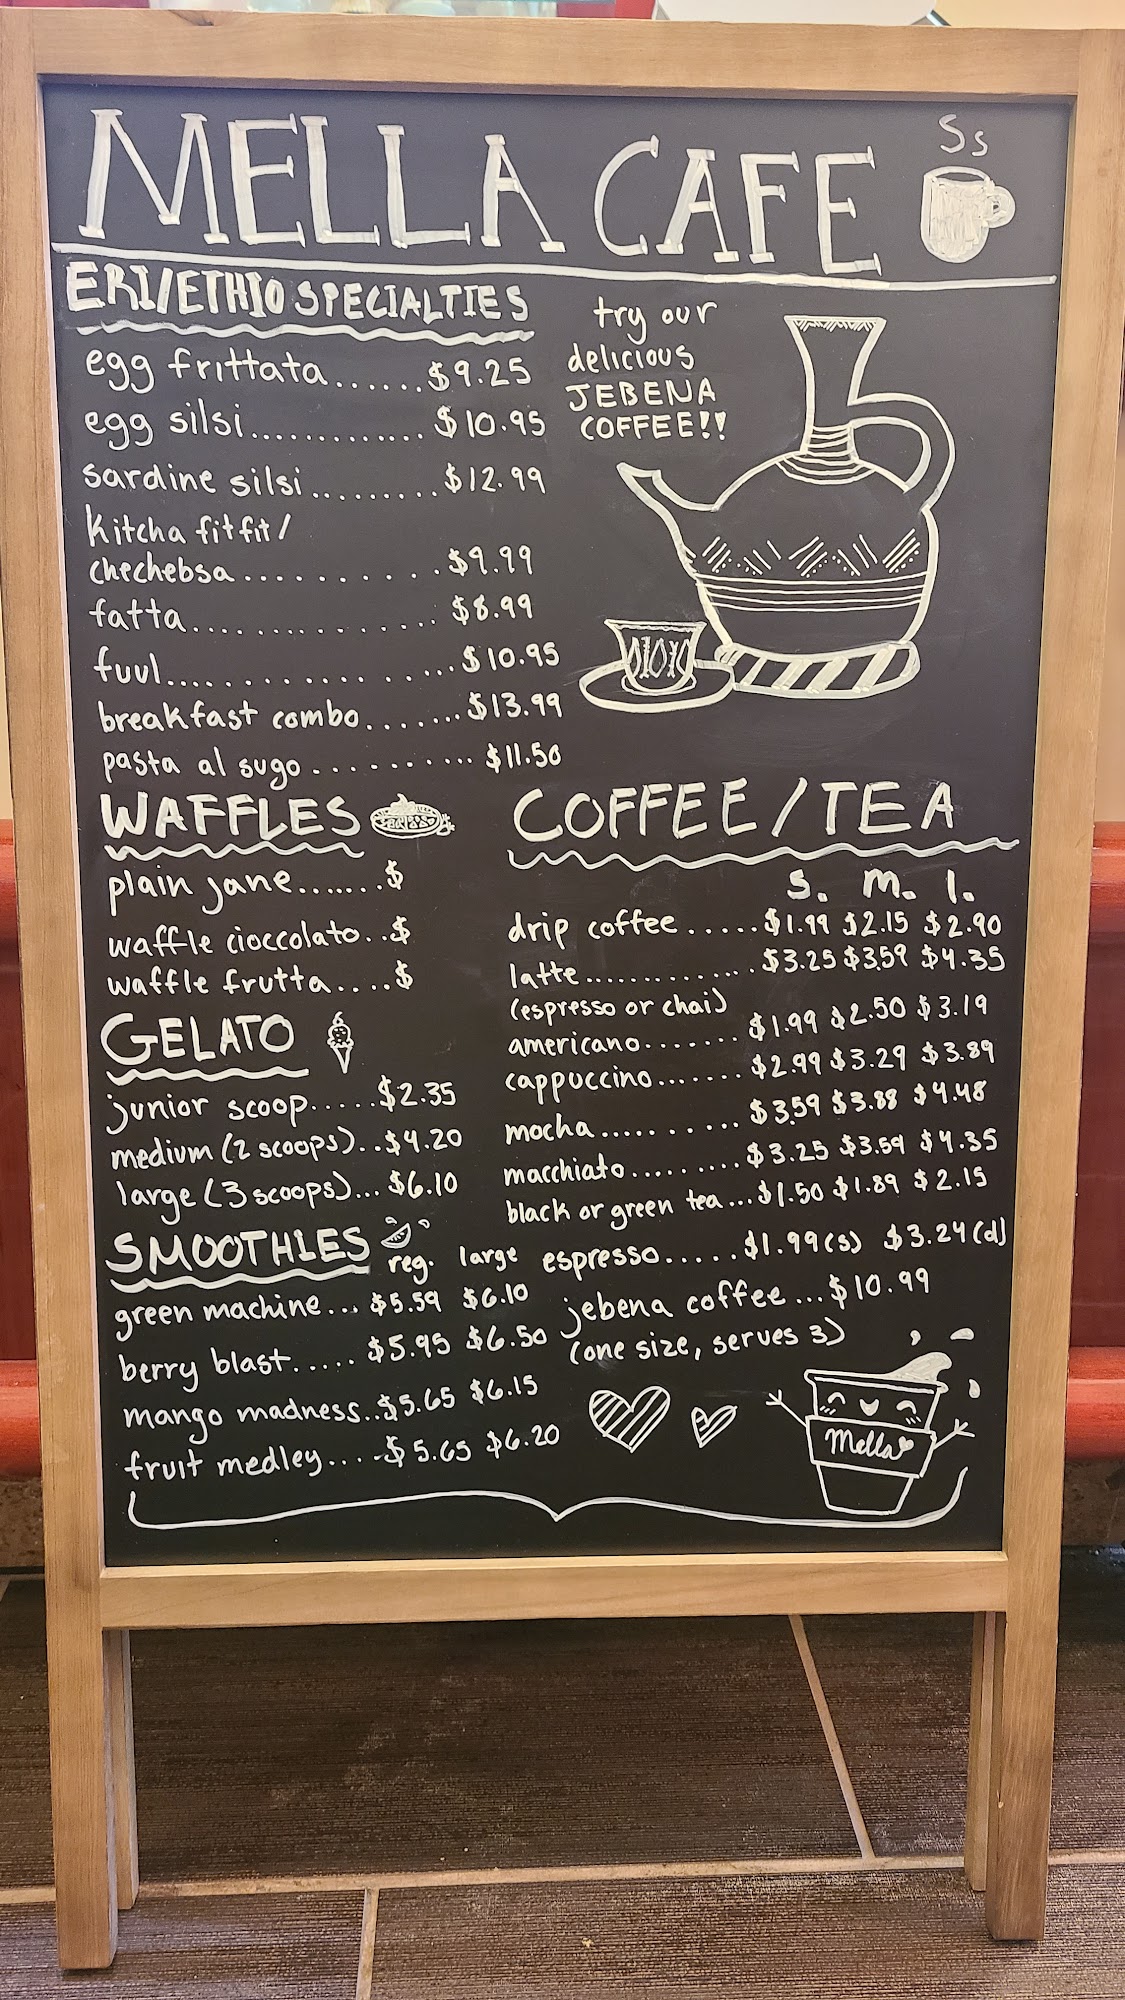 MELLA CAFE
ERI/ETHIO SPECIALTIES
egg frittata......$9.25
egg silsi.............$10.95
sardine silsi.........$12.99
kitcha fitfit/
chechebsa...........$9.99
fatta..............$8.99
fuul................$10.95
breakfast combo.......$13.99
pasta al sugo..........$11.50
try our
delicious
JEBENA
COFFEE!!
WAFFLES
plain jane.......$
waffle cioccolato..$
waffle frutta.....$
GELATO
junior scoop.....$2.35
medium (2 scoops)..$4.20
large (3 scoops)...$6.10
SMOOTHIES
reg. large
green machine...$5.59 $6.10
berry blast.....$5.95 $6.50
mango madness..$5.65 $6.15
fruit medley....$5.65 $6.20
COFFEE/TEA
s. m. l.
drip coffee.....$1.99 $2.15 $2.90
latte.............$3.25 $3.59 $4.35
(espresso or chai)
americano.......$1.99 $2.50 $3.19
cappuccino.......$2.99 $3.29 $3.89
mocha..........$3.59 $3.88 $4.48
macchiato.........$3.25 $3.59 $4.35
black or green tea...$1.50 $1.89 $2.15
espresso.....$1.99(s) $3.24(d)
jebena coffee...$10.99
(one size, serves 3)
Mella